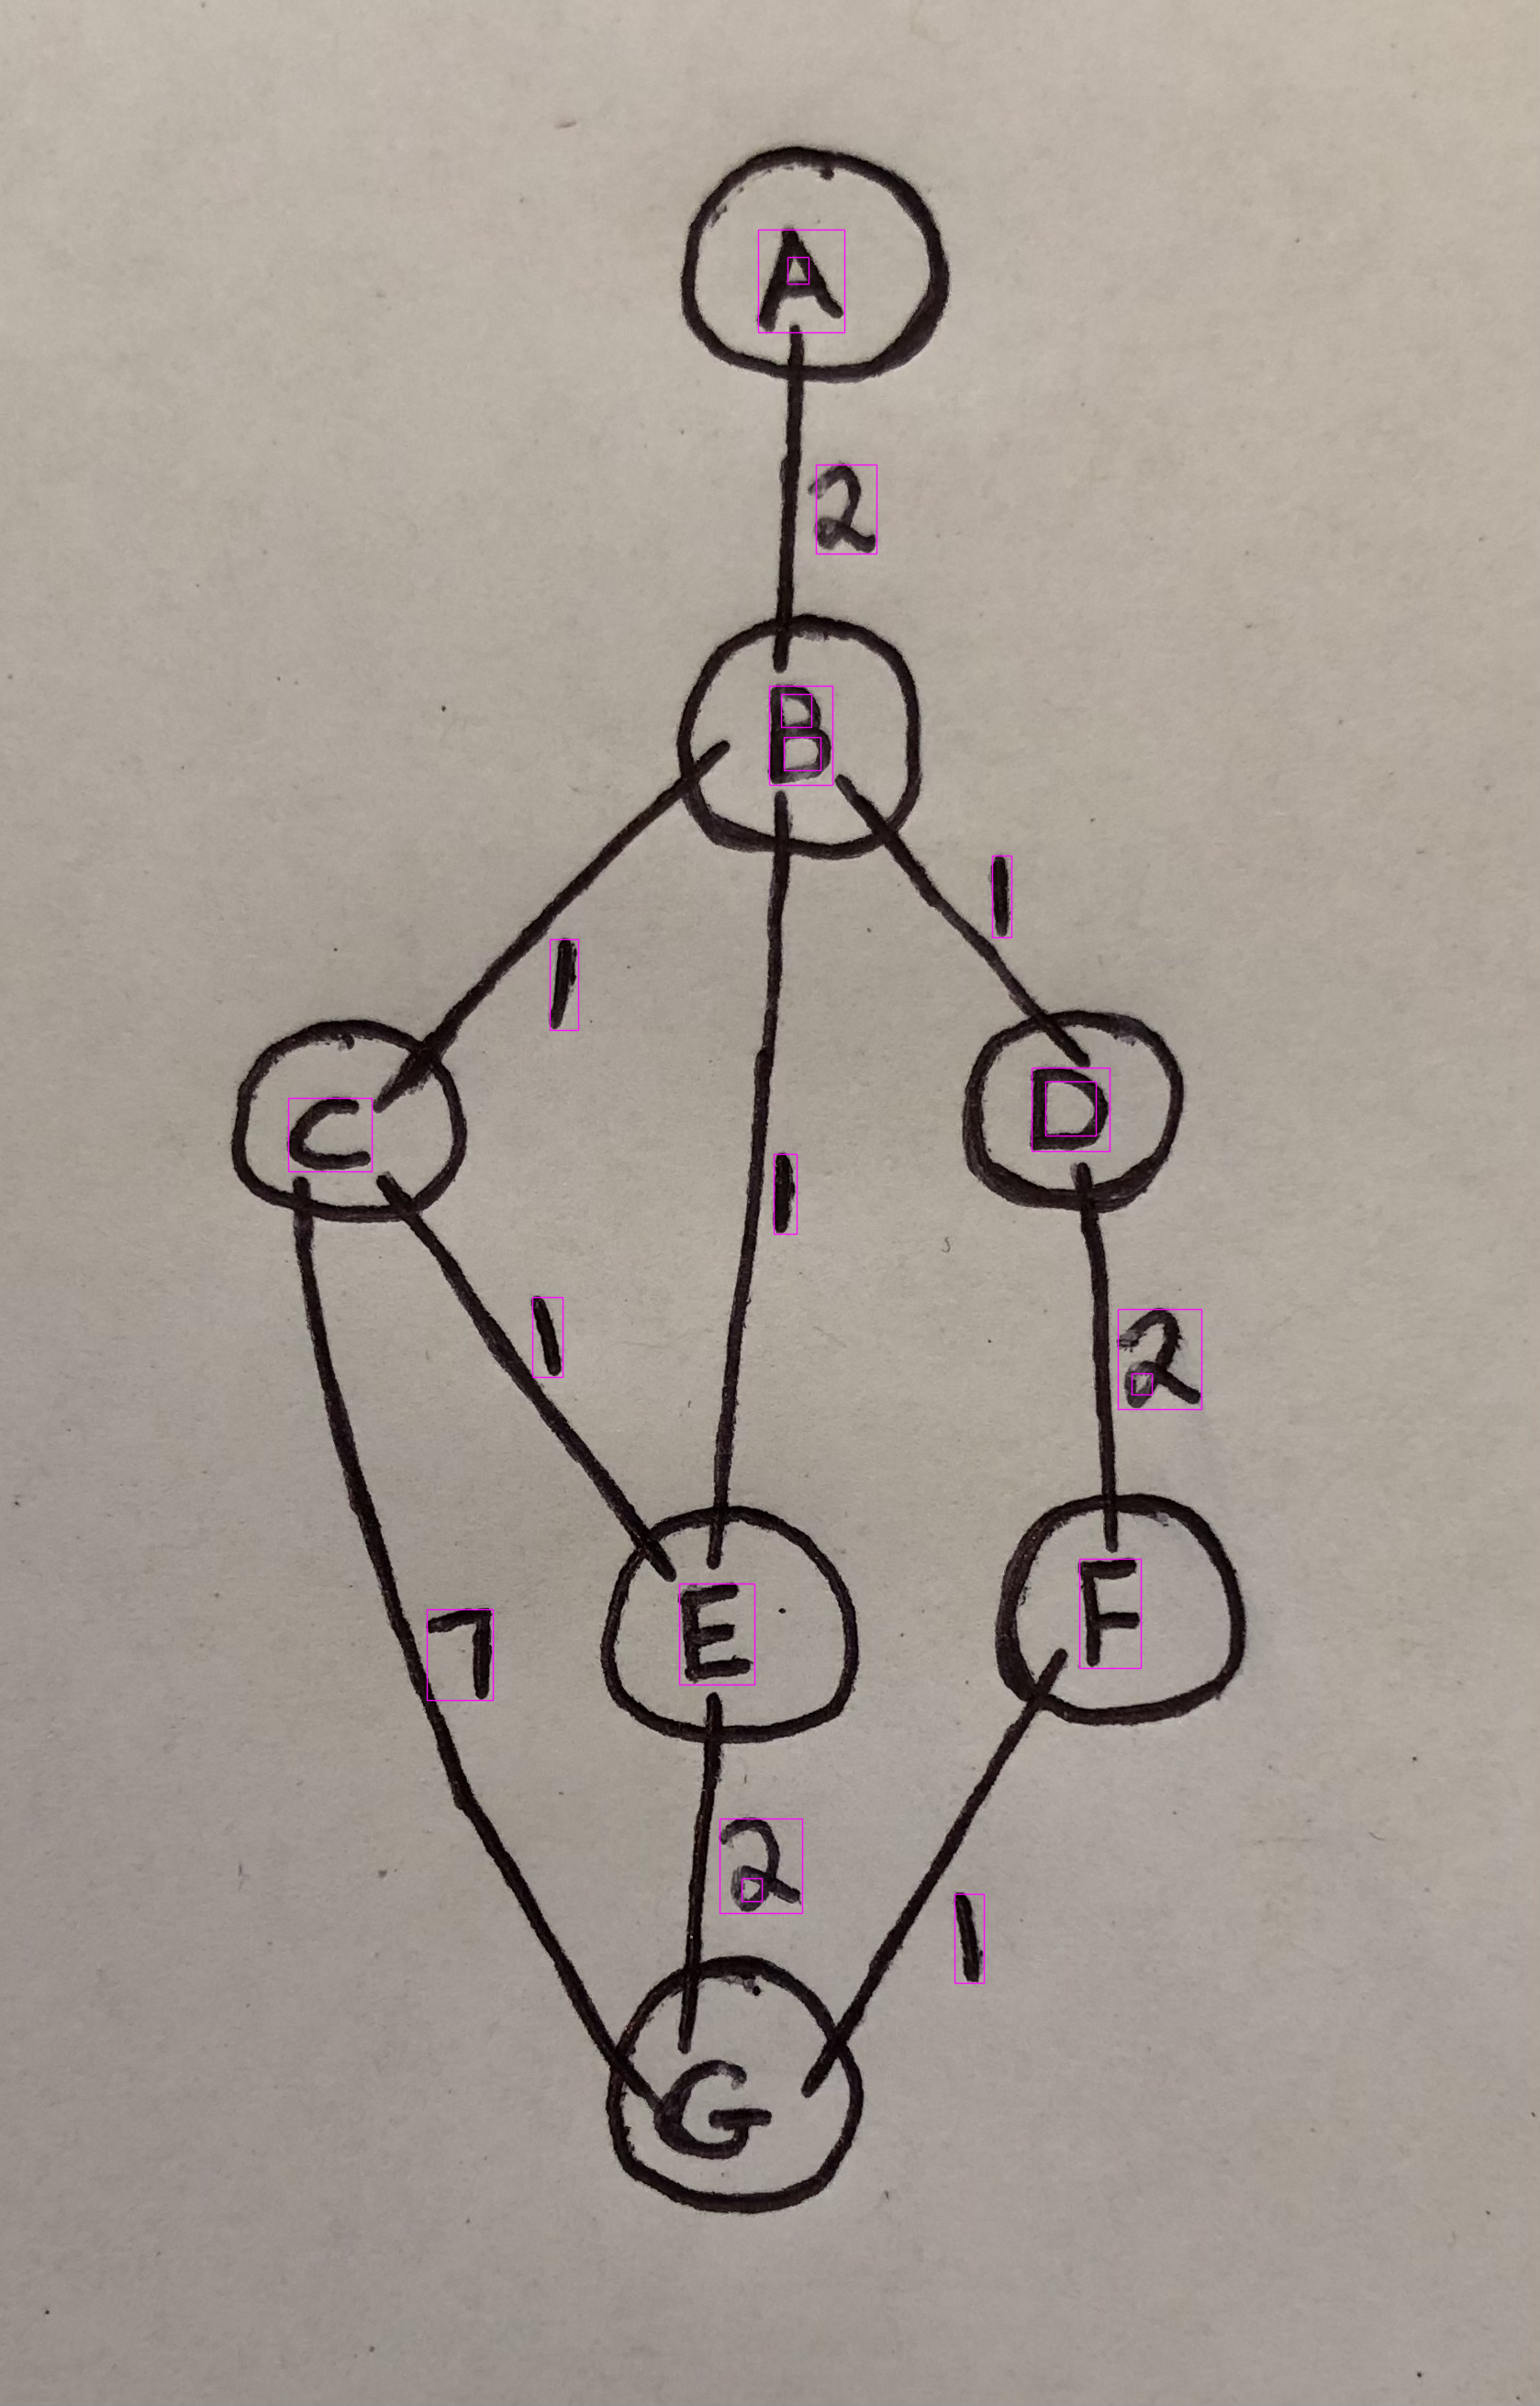 A
2
B
1
1
C
D
1
1
2
E
F
7
2
1
G